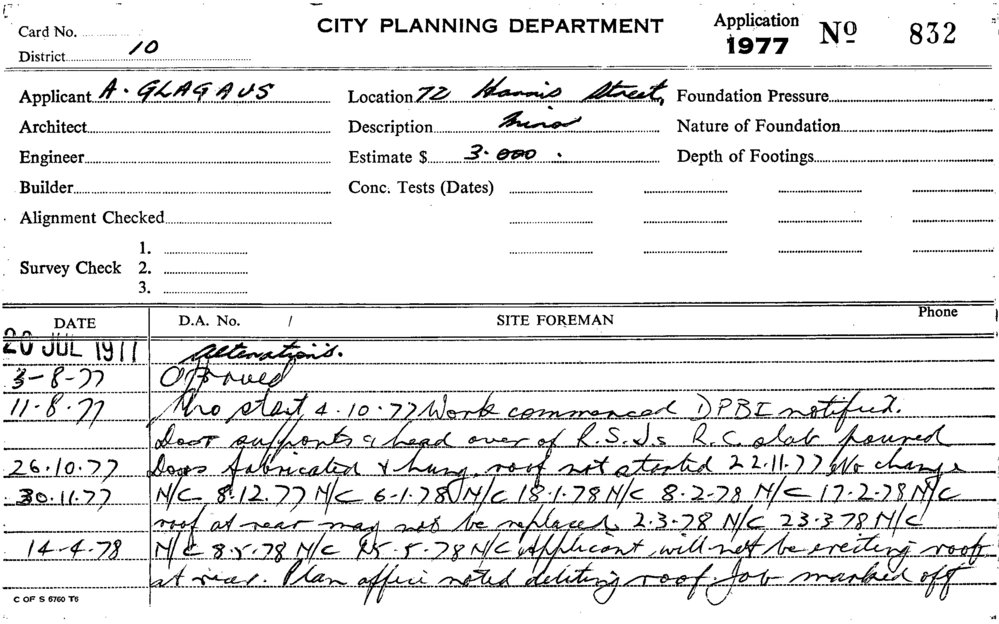 Card No.
CITY PLANNING DEPARTMENT
Application 1977 No 832
District 10
Applicant A. GLAGAUS
Location 72 Harris Street,
Foundation Pressure
Architect
Description Minor
Nature of Foundation
Engineer
Estimate $ 3.000.
Depth of Footings
Builder
Conc. Tests (Dates)
Alignment Checked
Survey Check 1.
2.
3.
DATE D.A. No. / SITE FOREMAN Phone
20 JUL 1977 Alterations.
3-8-77 Approved
11-8-77 No start 4.10.77 Work commenced DPBI notified.
Door supports & head over of R.S.Js R.C. slab poured
26.10.77 Doors fabricated & hung roof not started 22.11.77 No change
30.11.77 N/C 8.12.77 N/C 6-1.78 N/C 18.1.78 N/C 8.2-78 N/C 17-2.78 N/C
roof at rear may not be replaced 2.3-78 N/C 23.3.78 N/C
14-4.78 N/C 8.5.78 N/C 25.5.78 N/C Applicant will not be erecting roof
at rear. Plan office noted deleting roof Job marked off
C OF S 6760 T6